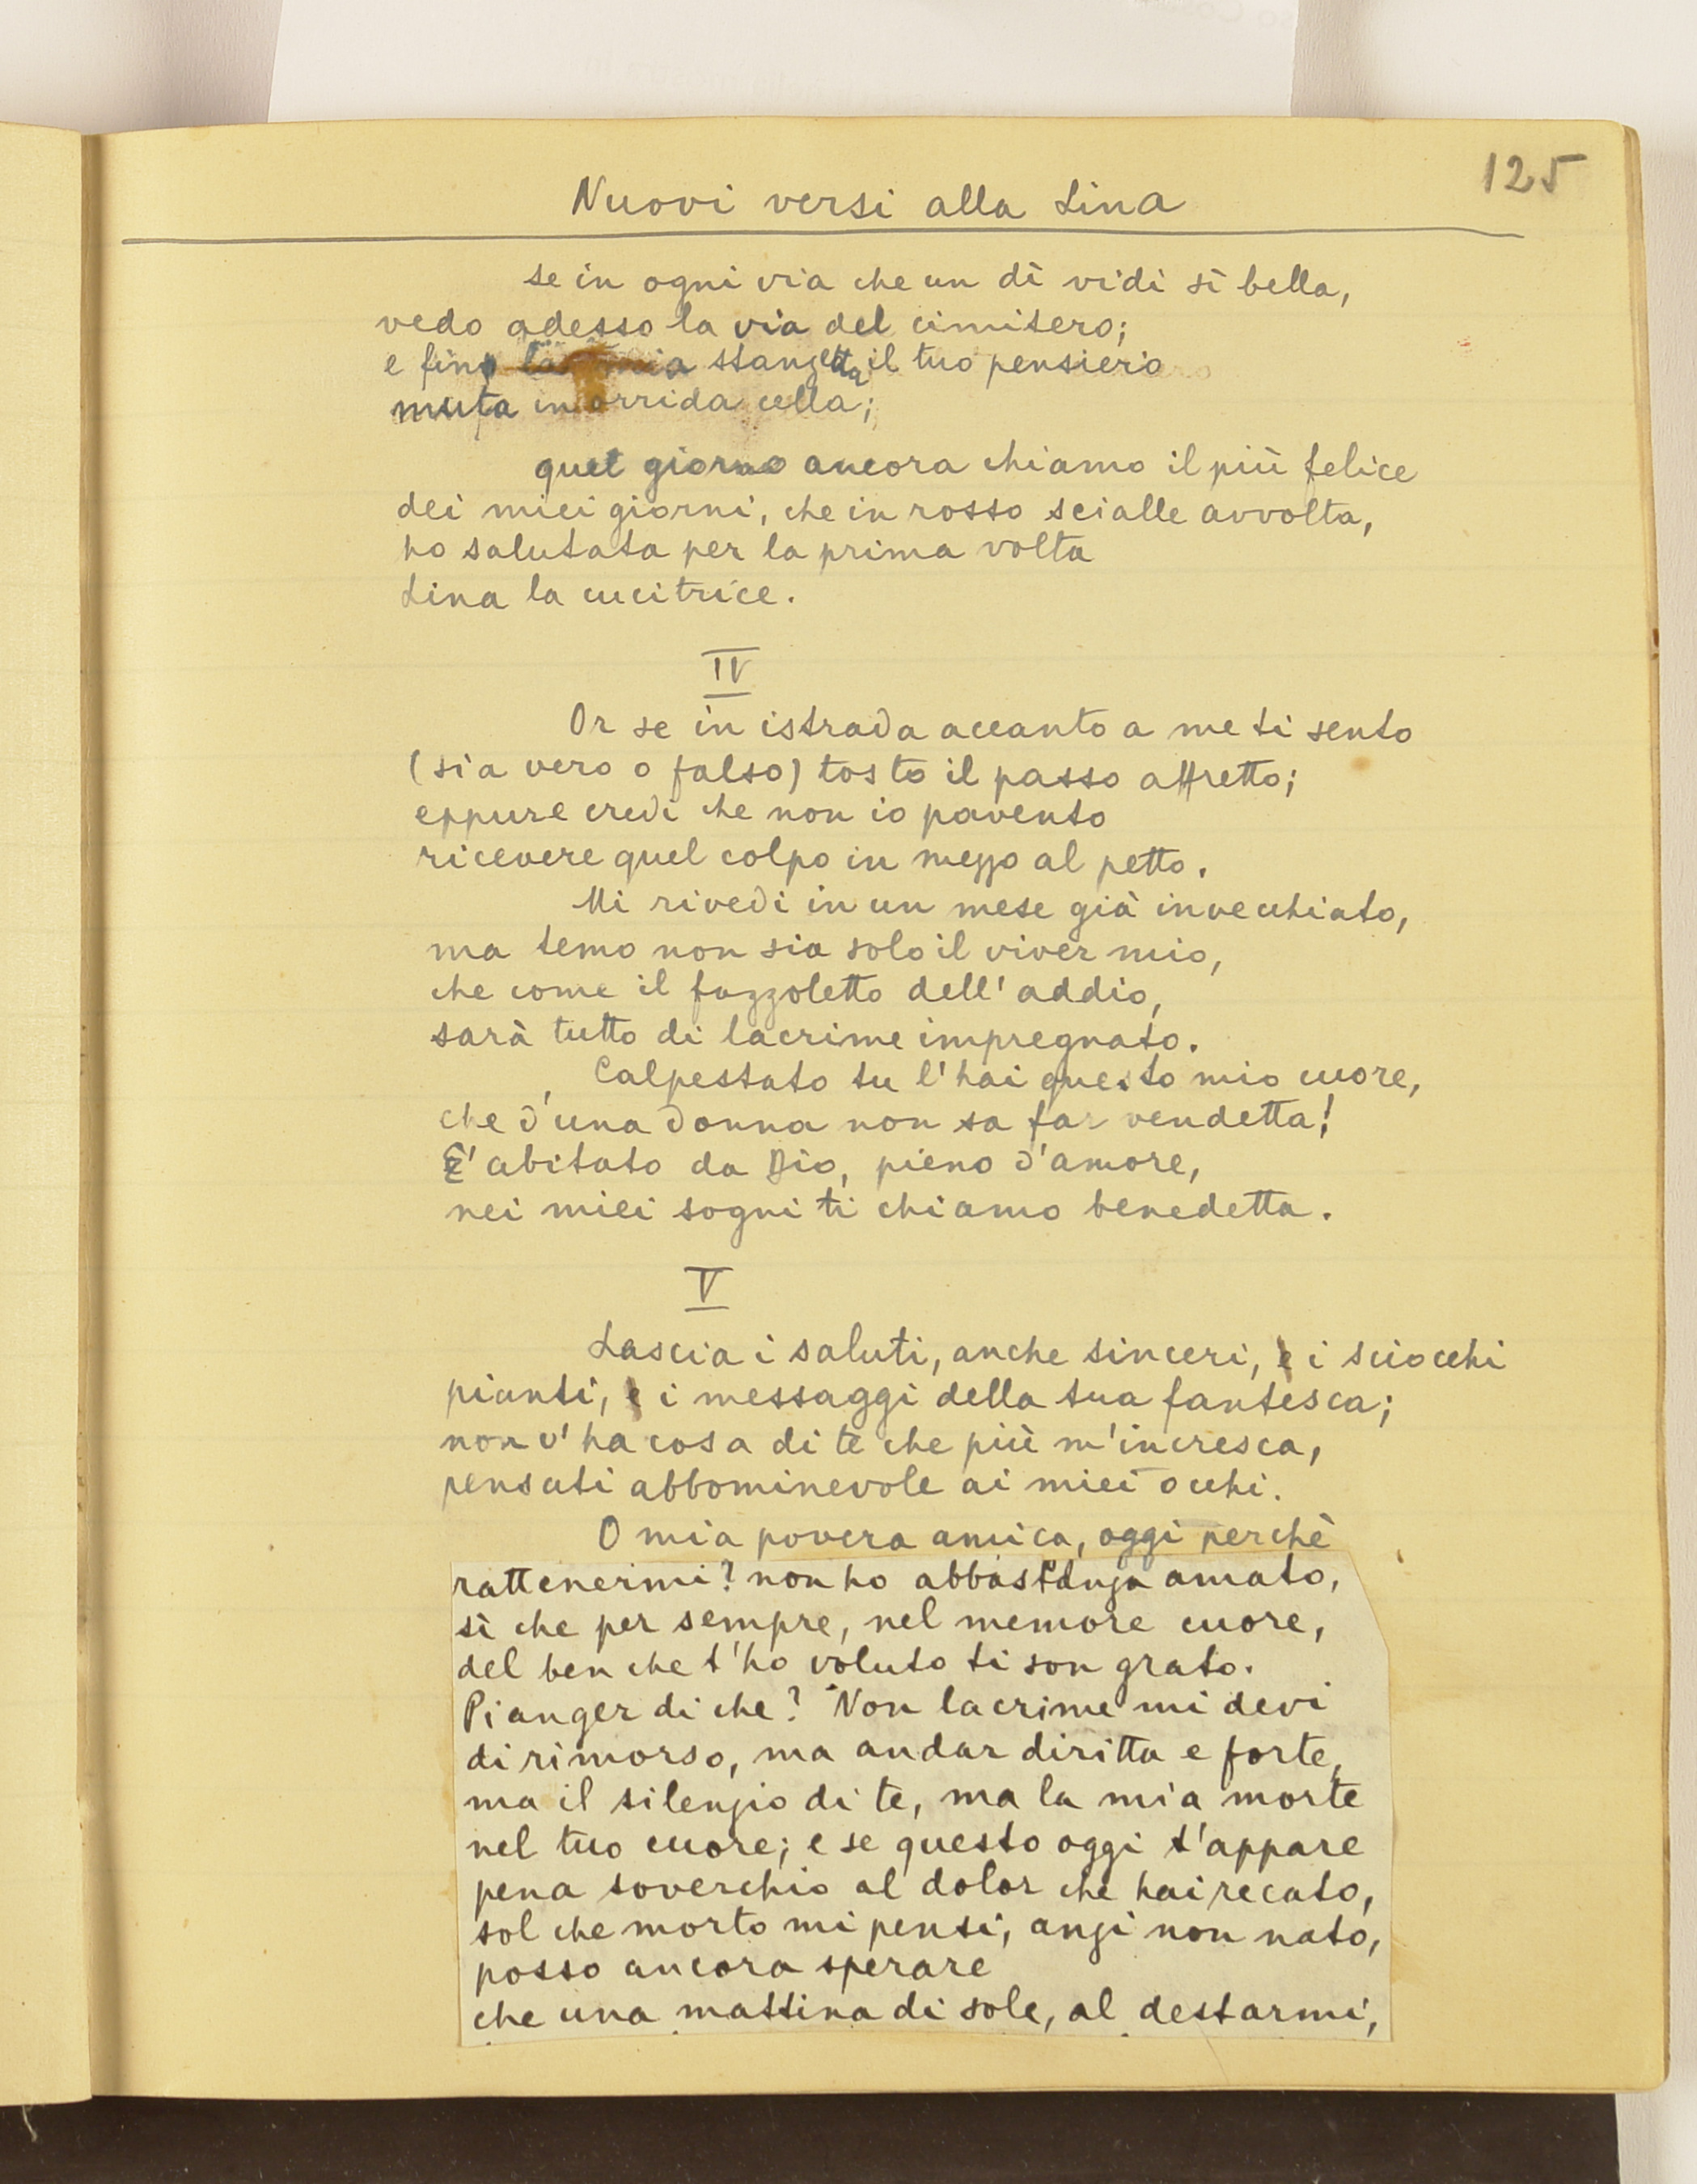 125
Nuovi versi alla Lina
se in ogni via che un dì vidi sì bella,
vedo adesso la via del cimitero;
e fino la mia stanzetta il tuo pensiero
muta in orrida cella;
quel giorno ancora chiamo il più felice
dei miei giorni, che in rosso scialle avvolta,
ho salutata per la prima volta
Lina la cucitrice.
IV
Or se in istrada accanto a me ti sento
(sia vero o falso) tosto il passo affretto;
eppure credi che non io pavento
ricevere quel colpo in mezzo al petto.
Mi rivedi in un mese già invecchiato,
ma temo non sia solo il viver mio,
che come il fazzoletto dell'addio,
sarà tutto di lacrime impregnato.
Calpestato tu l'hai questo mio cuore,
che d'una donna non sa far vendetta!
E' abitato da Dio, pieno d'amore,
nei miei sogni ti chiamo benedetta.
V
Lascia i saluti, anche sinceri, i sciocchi
pianti, i messaggi della tua fantesca;
non v'ha cosa di te che più m'incresca,
pensati abbominevole ai miei occhi.
O mia povera amica, oggi perchè
rattenermi? non ho abbastanza amato,
sì che per sempre, nel memore cuore,
del ben che t'ho voluto ti son grato.
Pianger di che? Non lacrime mi devi
di rimorso, ma andar diritta e forte,
ma il silenzio di te, ma la mia morte
nel tuo cuore; e se questo oggi t'appare
pena soverchia al dolor che hai recato,
sol che morto mi pensi, anzi non nato,
posso ancora sperare
che una mattina di sole, al destarmi,